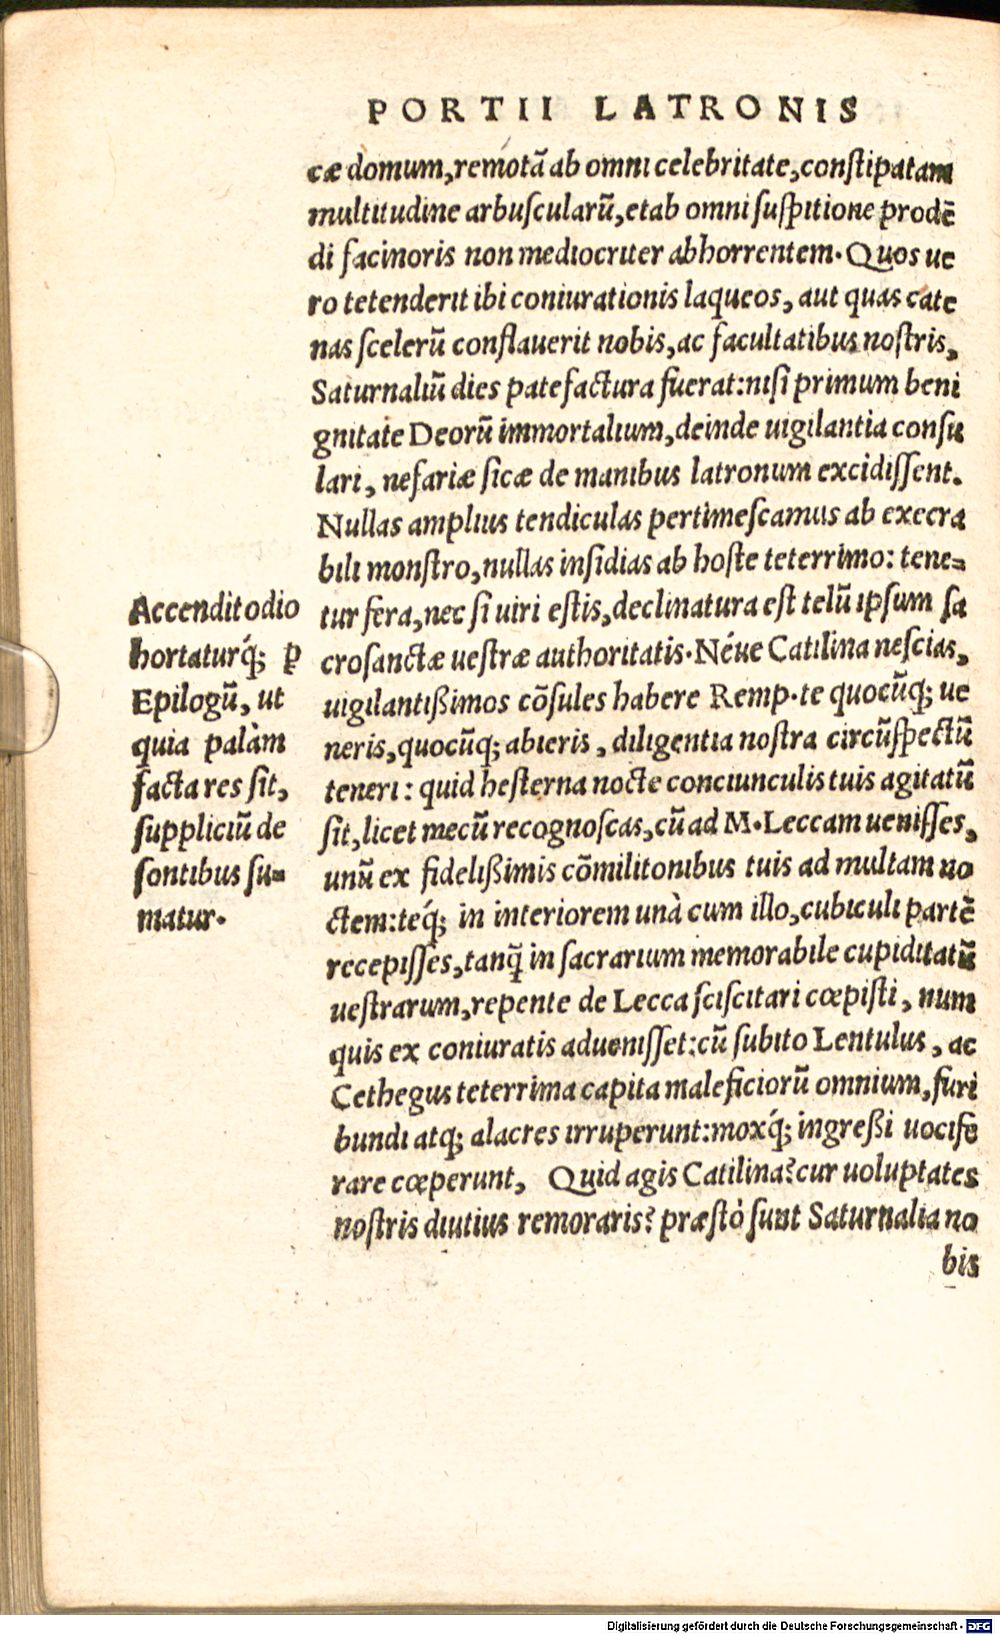 PORTII LATRONIS
cæ domum, remotã ab omni celebritate, constipatam
multitudine arbuscularũ, et ab omni suspitione prodẽ
di facinoris non mediocriter abhorrentem. Quos ue
ro tetenderit ibi coniurationis laqueos, aut quas cate
nas scelerũ conflauerit nobis, ac facultatibus nostris,
Saturnaliũ dies patefactura fuerat: nisi primum beni
gnitate Deorũ immortalium, deinde uigilantia consu
lari, nefariæ sicæ de manibus latronum excidissent.
Nullas amplius tendiculas pertimescamus ab execra
bili monstro, nullas insidias ab hoste teterrimo: tene=
tur fera, nec si uiri estis, declinatura est telũ ipsum sa
crosanctæ uestræ authoritatis. Néue Catilina nescias,
uigilantißimos cõsules habere Remp. te quocũq; ue
neris, quocũq; abieris, diligentia nostra circũspectũ
teneri: quid hesterna nocte conciunculis tuis agitatũ
sit, licet mecũ recognoscas, cũ ad M. Leccam uenisses,
unũ ex fidelißimis cõmilitonibus tuis ad multam no
ctem: teq́; in interiorem unà cum illo, cubiculi partẽ
recepisses, tanq̃ in sacrarium memorabile cupiditatũ
uestrarum, repente de Lecca sciscitari cœpisti, num
quis ex coniuratis aduenisset: cũ subito Lentulus, ac
Cethegus teterrima capita maleficiorũ omnium, furi
bundi atq; alacres irruperunt: moxq́; ingreßi uocife
rare cœperunt, Quid agis Catilina? cur uoluptates
nostris diutius remoraris? præstò sunt Saturnalia no
bis
Accendit odio
hortaturq́; ꝑ
Epilogũ, ut
quia palàm
facta res sit,
suppliciũ de
sontibus su=
matur.
Digitalisierung gefördert durch die Deutsche Forschungsgemeinschaft - DFG